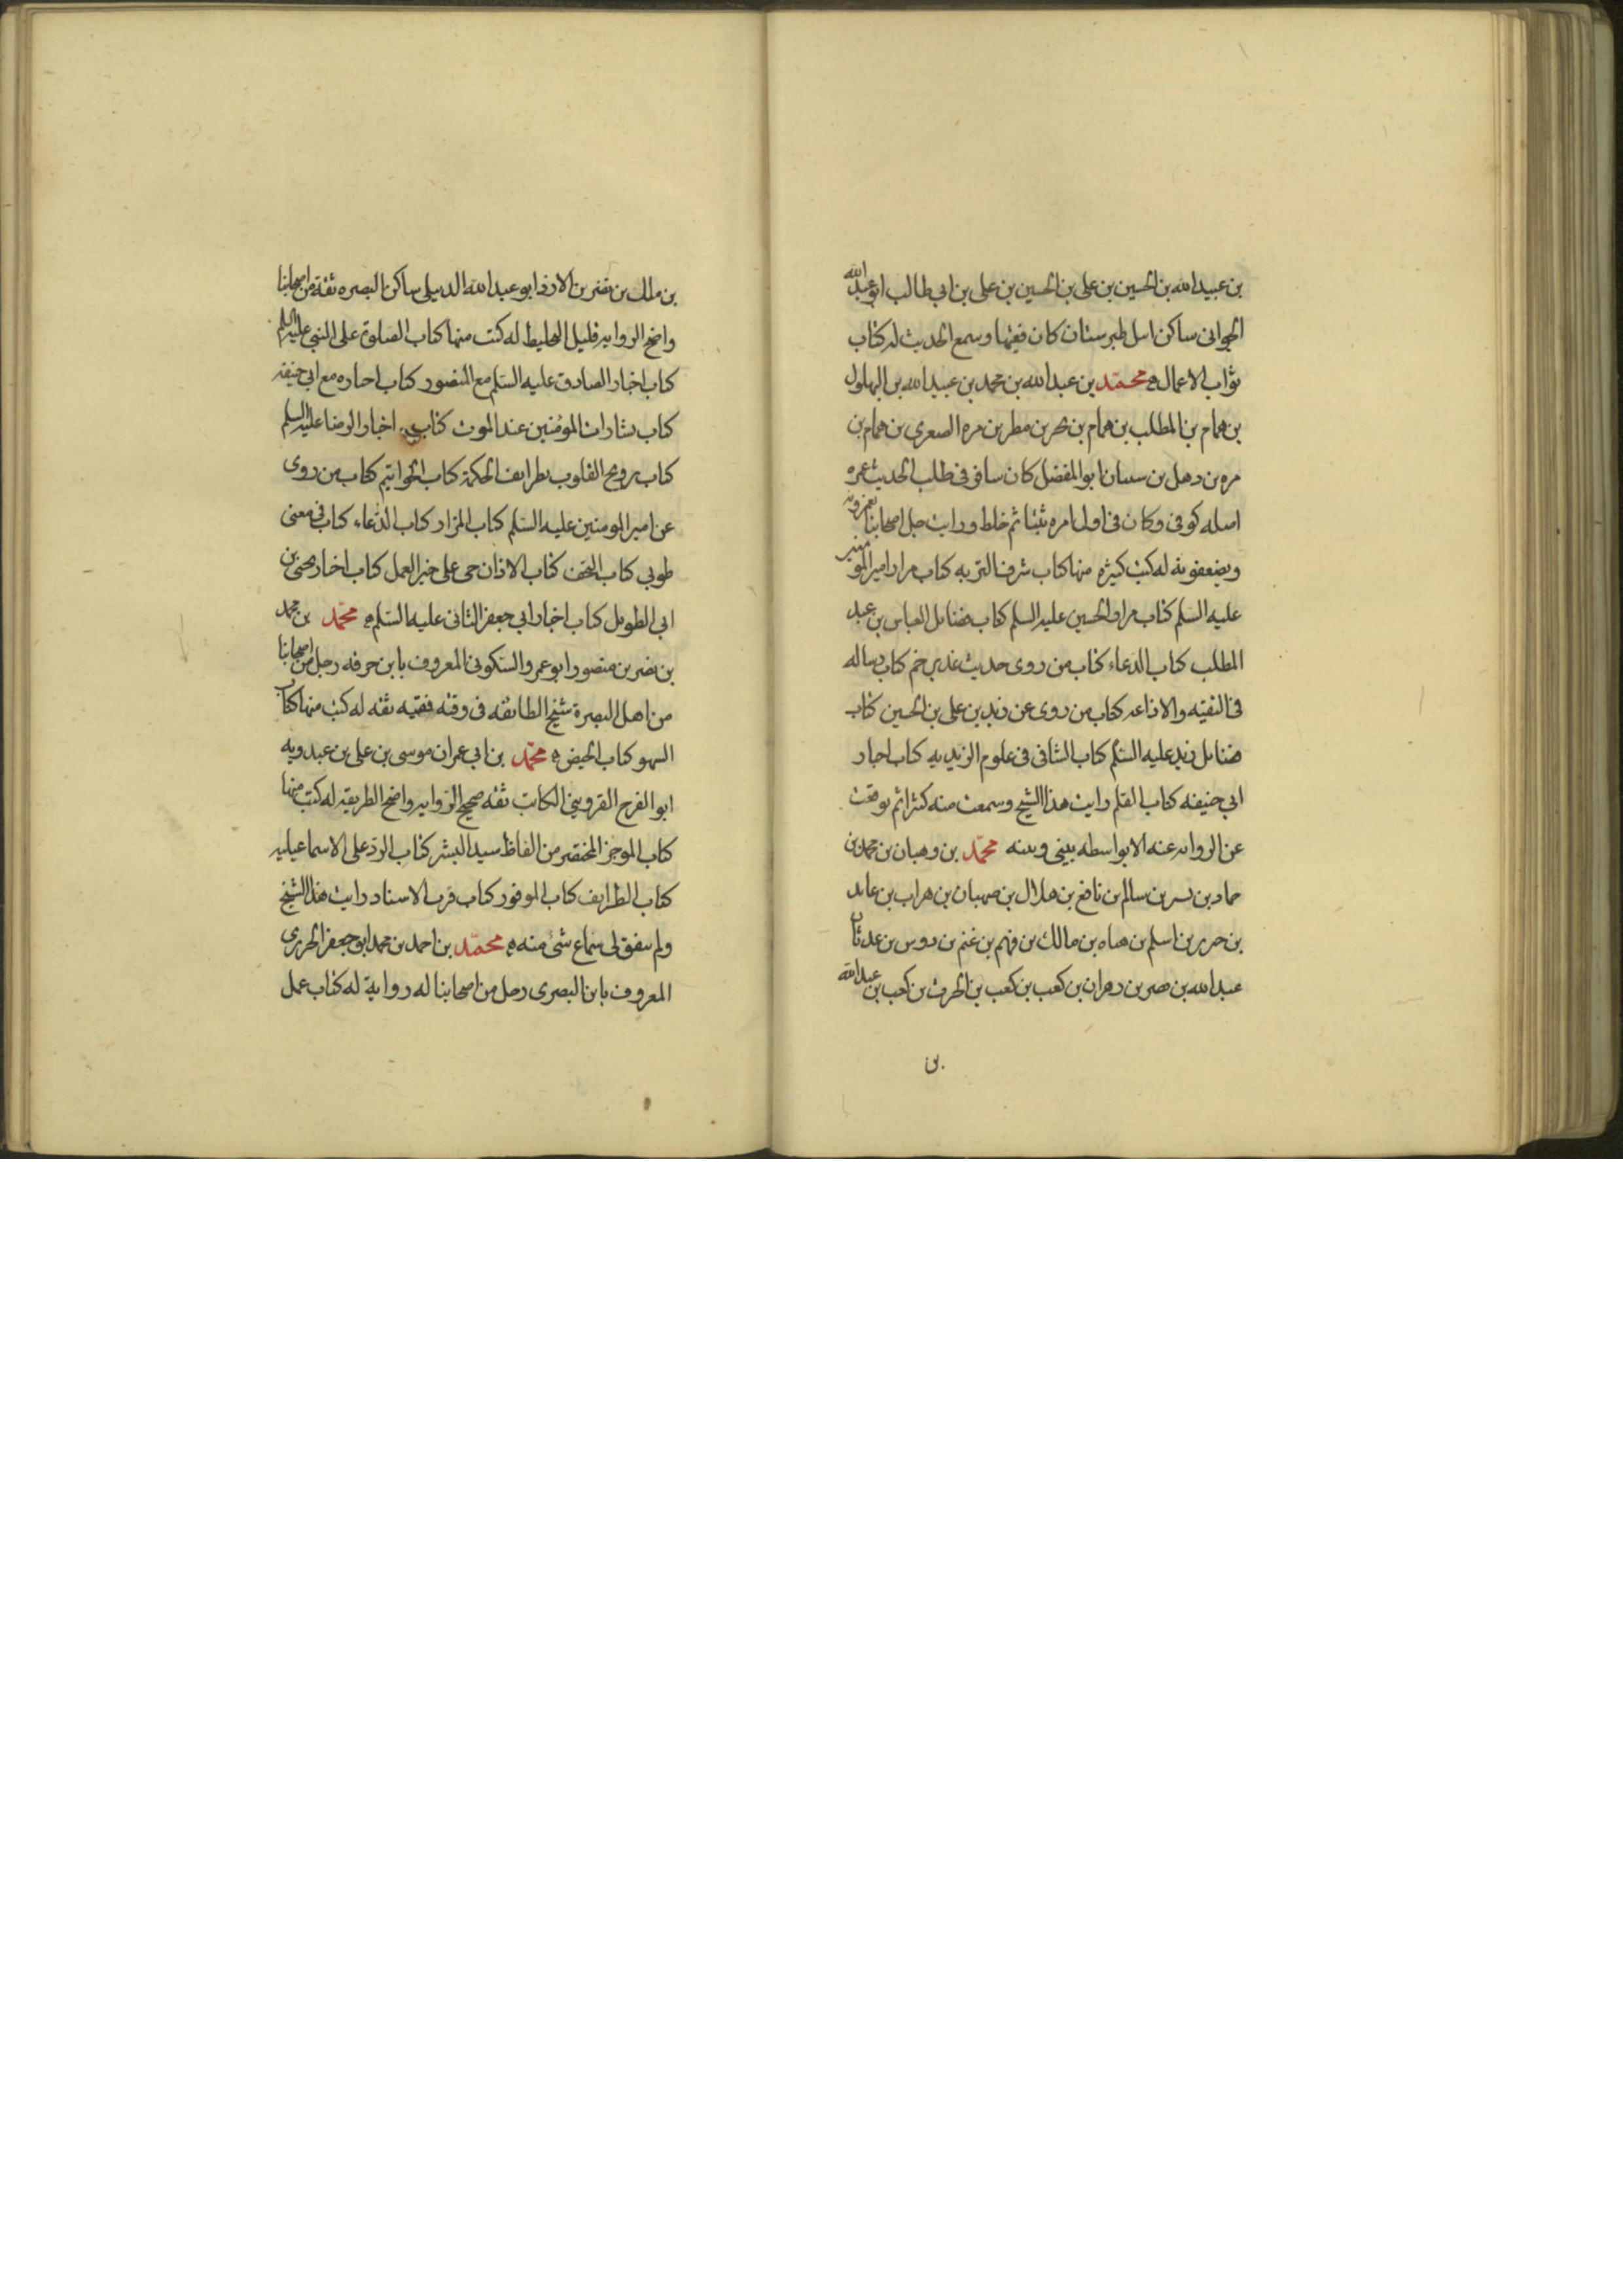 بن عبيدالله بن الحسين بن على بن الحسين بن على بن ابي طالب ابو عبدالله
الجوانى ساكن امل طبرستان كان فقيها وسمع الحديث له كتاب
ثواب الاعمال ه محمد بن عبدالله بن محمد بن عبيدالله بن البهلول
بن همام بن المطلب بن همام بن بحر بن مطر بن مره الصعرى بن همام بن
مره بن ذهل بن سىىان ابو المفضل كان سافر فى طلب الحديث عمره
اصله كوفى وكان فى اول امره ثبتا ثم خلط ورايت جل اصحابنا يغمزونه
ويضعفونه له كتب كثيره منها كتاب شرف التربه كتاب مزار امير المومنين
عليه السلم كتاب مزار الحسين عليه السلم كتاب فضائل العباس بن عبد
المطلب كتاب الدعاء كتاب من روى حديث غدير خم كتاب رساله
فى التقيه والاذاعه كتاب من روى عن زيد بن على بن الحسين كتاب
فضائل زيد عليه السلم كتاب الشافى فى علوم الزيديه كتاب اخبار
ابي حنيفه كتاب القلم رايت هذا الشيخ وسمعت منه كثيرا ثم توقفت
عن الروايه عنه الا بواسطه بينى وبينه محمد بن وهبان بن محمد بن
حماد بن بسر بن سالم بن نافع بن هلال بن صهبان بن هراب بن عايد
بن حرير بن اسلم بن هناه بن مالك بن فهم بن غنم بن دوس بن عدثان
عبدالله بن نصر بن زهران بن كعب بن كعب بن الحرث بن كعب بن عبدالله
بن
بن ملك بن نضر بن الازد ابو عبدالله الدبيلى ساكن البصره ثقة من اصحابنا
واضح الروايه قليل التخليط له كتب منها كتاب الصلوة على النبى عليه السلم
كتاب اخبار الصادق عليه السلم مع المنصور كتاب اخباره مع ابى حنيفه
كتاب بشارات المومنين عند الموت كتاب اخبار الرضا عليه السلم
كتاب ترويح القلوب بطرايف الحكمة كتاب الخواتيم كتاب من روى
عن امير المومنين عليه السلم كتاب المزار كتاب الدعاء كتاب فى معنى
طوبى كتاب التحف كتاب الاذان حى على خير العمل كتاب اخبار يحيى بن
ابى الطويل كتاب اخبار ابي جعفر الثانى عليه السلم ه محمد بن محمد
بن نضر بن منصور ابو عمرو السكونى المعروف بابن خرقه رجل من اصحابنا
من اهل البصرة شيخ الطائفه فى وقته فقيه ثقه له كتب منها كتاب
السهو كتاب الحيض ه محمد بن ابي عمران موسى بن على بن عبدويه
ابو الفرج القزوينى الكاتب ثقه صحيح الروايه واضح الطريقه له كتب منها
كتاب الموجز المختصر من الفاظ سيد البشر كتاب الرد على الاسماعيليه
كتاب الطرايف كتاب الموفور كتاب قرب الاسناد رايت هذا الشيخ
ولم يتفق لى سماع شئ منه ه محمد بن احمد بن محمد ابو جعفر الحريرى
المعروف بابن البصرى رجل من اصحابنا له رواية له كتاب عمل